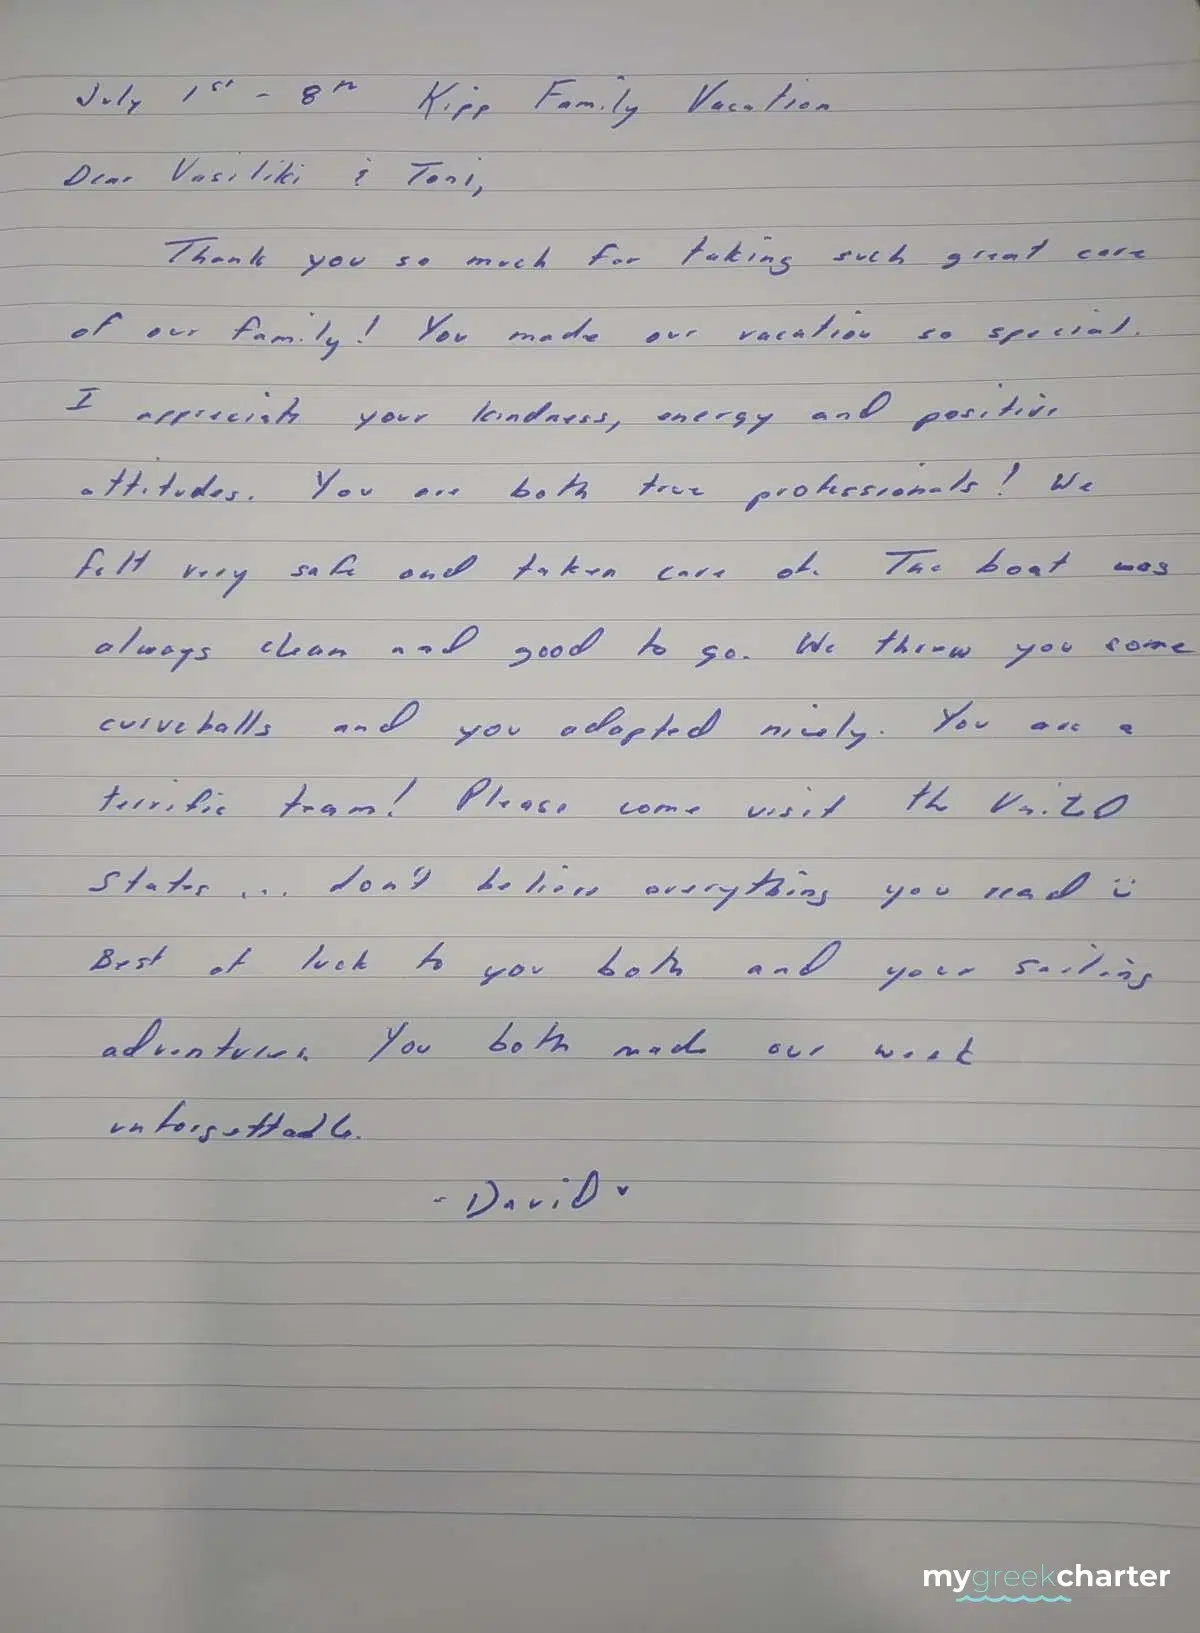 July 1st - 8th Kipp Family Vacation
Dear Vasiliki & Toni,
Thank you so much for taking such great care
of our family! You made our vacation so special.
I appreciate your kindness, energy and positive
attitudes. You are both true professionals! We
felt very safe and taken care of. The boat was
always clean and good to go. We threw you some
curveballs and you adapted nicely. You are a
terrific team! Please come visit the United
States ... don't believe everything you read ü
Best of luck to you both and your sailing
adventures. You both made our week
unforgettable.
- David ♥
mygreekcharter